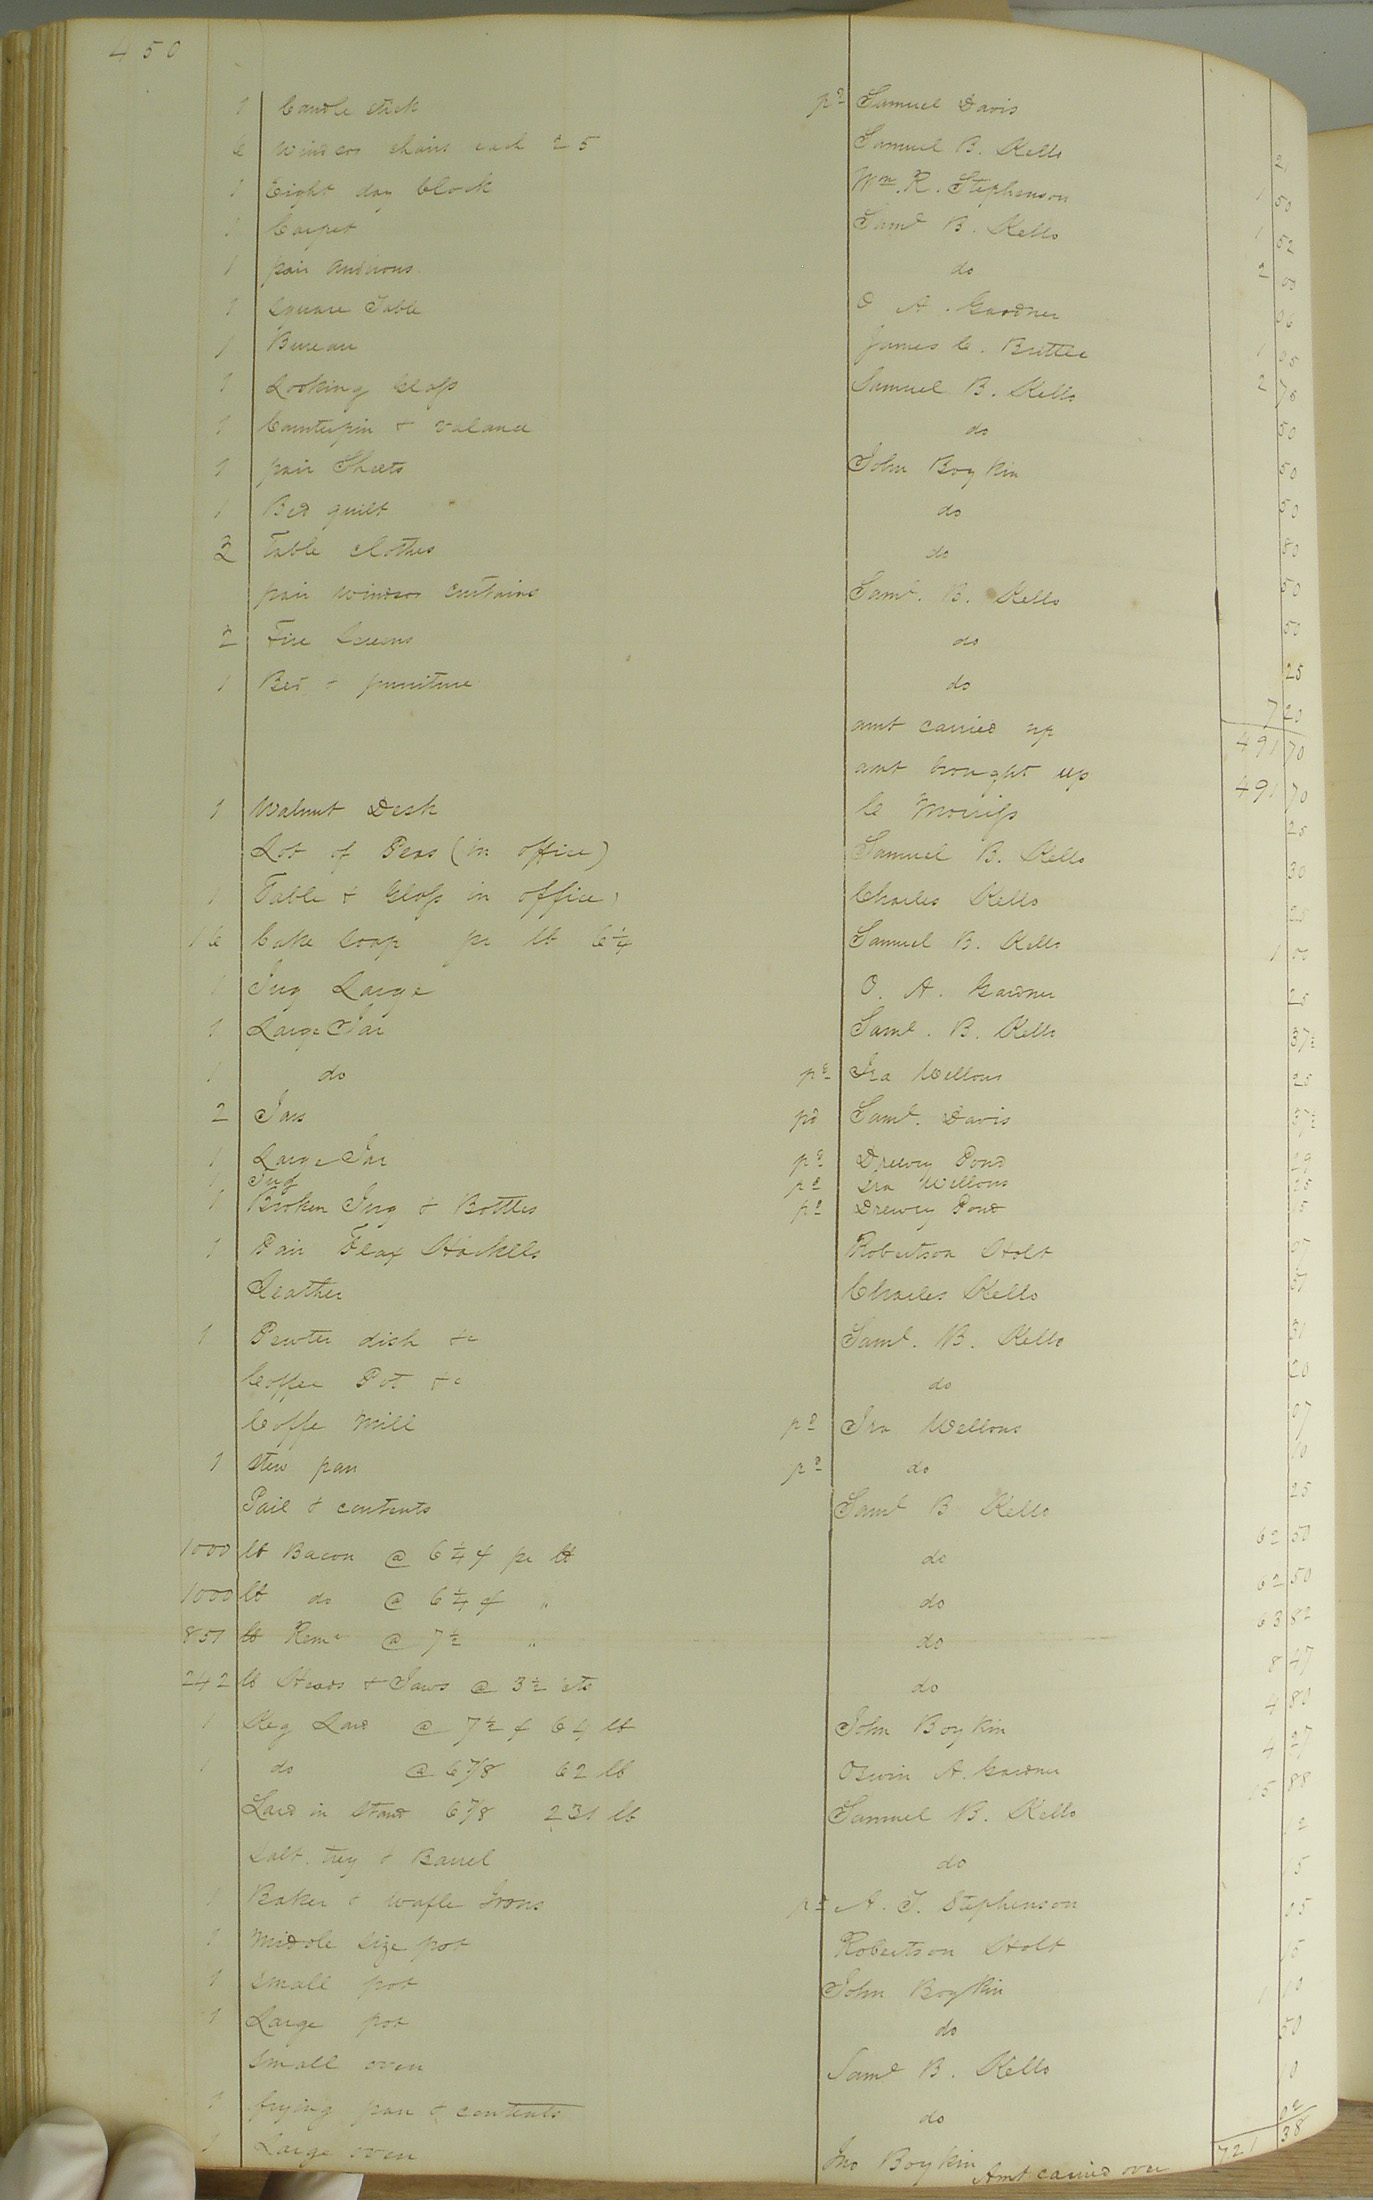 450
1 Candle stick pd Samuel Davis 21
6 Windsor chairs each 25 Samuel B. Kello 1 50
1 Eight day Clock Wm. R. Stephenson 1 52
1 Carpet Saml B. Kello 2 00
1 pair andirons do 06
1 Square Table O A. Gardner 1 05
1 Bureau James C. Brittle 2 75
1 Looking Glass Samuel B. Kello 50
1 Counterpin & valance do 50
1 pair Sheets John Boykin 50
1 Bed quilt do 80
3 Table clothes do 50
pair window curtains Saml. B. Kello 50
2 Fire Screens do 25
1 Bed & furniture do 7 20
amt carried up 491 70
amt brought up 491 70
1 Walnut Desk C Morriss 25
Lot of Peas (in office) Samuel B. Kello 30
1 Table & Glass in office Charles Kello
16 Cake soap pr lb 6¼ Samuel B. Kello 1 00
1 Jug Large O. A. Gardner 25
1 Large Jar Saml. B. Kello 37½
1 do pd Ira Wellons 25
2 Jars pd Saml. Davis 37½
1 Large Jar pd Drewry Pond 29
1 Jug pd Ira Wellons 25
1 Broken Jug & Bottles pd Drewry Pond 15
1 Pair Flax Hackells Robertson Holt 07
Leather Charles Kello 51
1 Pewter dish &c Saml. B. Kello 31
Coffee Pot &c do 20
Coffe Mill pd Ira Wellons 07
1 stew pan pd do 10
Pail & contents Saml B Kello 25
1000 lb Bacon @ 6¼ ¢ pr lb do 62 50
1000 lb do @ 6¼ ¢ " do 62 50
851 lb Remr @ 7½ " do 63 82
242 lb Heads & Jaws @ 3½ cts do 8 47
1 Keg Lard @ 7½ ¢ 64 lb John Boykin 4 80
1 do @ 6⅞ 62 lb Oswin A. Gardner 4 27
Lard in stand 6⅞ 231 lb Samuel B. Kello 15 88
Salt. trey & Barrel do 12
1 Baker & wafle Irons pd A. J. Stephenson 5
1 Middle size pot Robertson Holt 05
1 small pot John Boykin 15
1 Large pot do 1 10
small oven Saml B. Kello 50
1 frying pan & contents do 10
1 Large oven Jno Boykin 02
Amt carried over 721 38